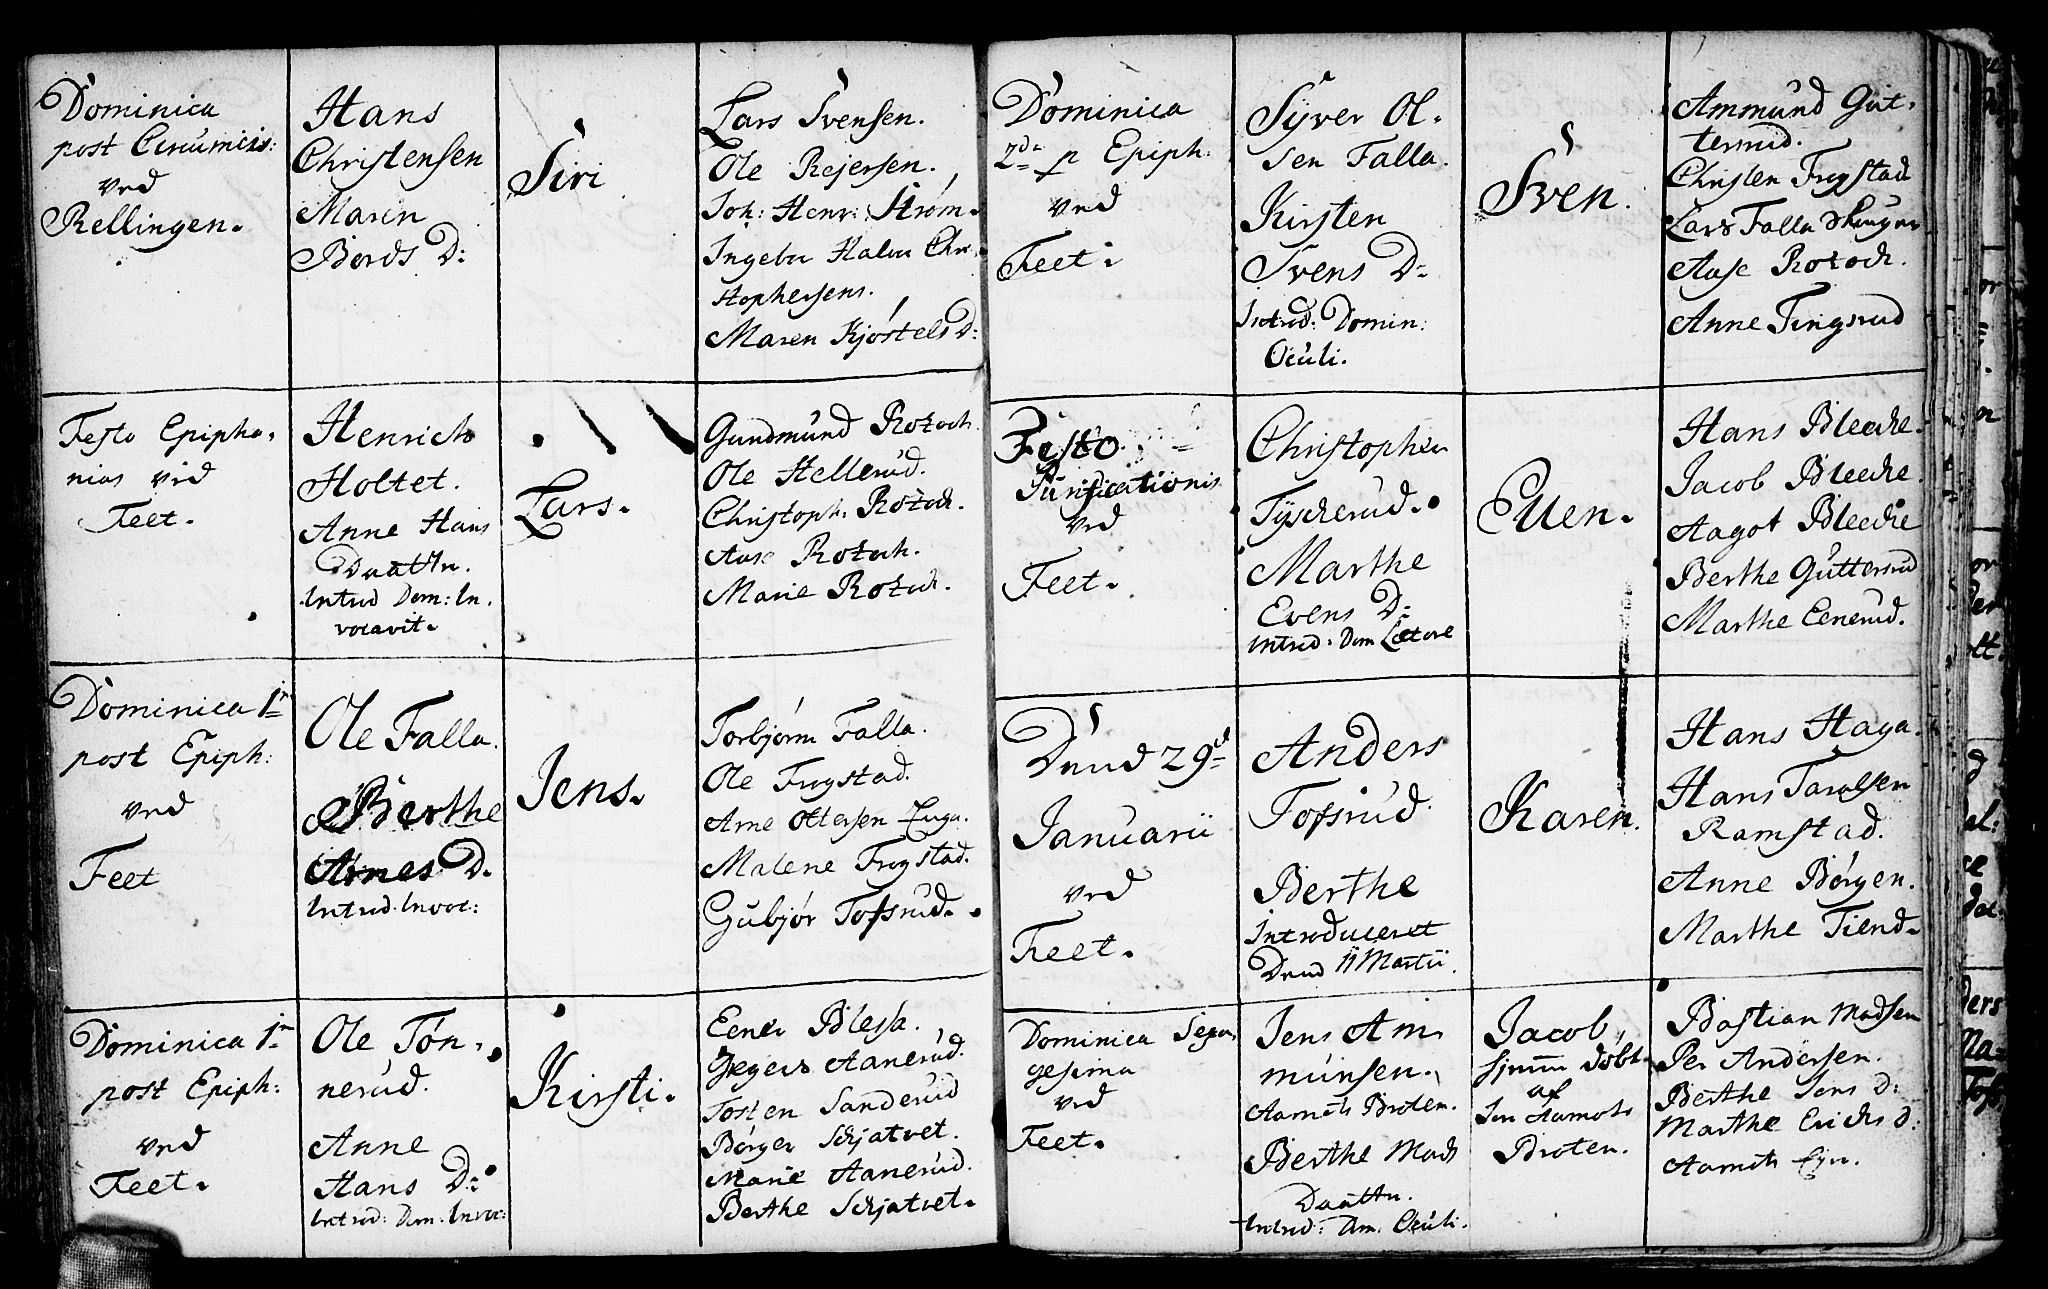 Dominica
post Circumcis:
ved
Rellingen.
Hans
Christensen
Maren
Bords D:
Siri
Lars Svensen.
Ole Rejersen.
Joh: Henr: Strøm.
Ingebr Halvor Chri-
stophersens.
Maren Kjóstels D:
Festo Epipha-
nias ved
Feet.
Henrich
Holtet.
Anne Hans
Daattr.
Intrud Dom: In.
vocavit.
Lars.
Gundmund Rozoch.
Ole Hellerud.
Christoph. Rozoch.
Aase Rozoch.
Marie Rozoch.
Dominica 1ma
post Epiph:
ved
Feet
Ole Falla.
Berthe
Arnes D.
Intrud. Invoc:
Jens.
Torbjørn Falla.
Ole Frogstad.
Arne Ottersen
Malene Frogstad.
Gubjør Tofsrud.
Dominica 1ma
post Epiph:
ved
Feet.
Ole Tøn-
nerud.
Anne
Hans D:
Intrud: Dom. Invoc:
Kirsti.
Ener Blessa.
Gregers Aanerud.
Tosten Sanderud
Børger Schjatvet.
Marie Aanerud.
Berthe Schjatvet.
Dominica
2da p Epiph:
ved
Feet.
Syver Ol-
sen Falla.
Kirsten
Svens D:
Intrud: Domin:
Oculi.
Sven.
Ammund Gut-
tersrud.
Christen Frogstad
Lars Falla
Aase Rozoch.
Anne Tingsrud
Festo
Purificationis
ved
Feet.
Christopher
Tyscherud.
Marthe
Evens D:
Intrud: Dom Lætare
Even.
Hans Bleche.
Jacob Bleche.
Aagot Bleche
Berthe Guttersrud
Marthe Eenerud.
Dnud 29de
Januarii
ved
Feet.
Anders
Tofsrud.
Berthe
Introduceret
Dnud 11 Martii.
Karen.
Hans Haga.
Hans Tarølsen
Ramstad.
Anne Børgen.
Marthe Tiend.
Dominica Sexa-
gesima
ved
Feet.
Jens Am-
munsen.
Aamots Broten.
Berthe Mads
Daattr.
Intrud: Dm. Oculi.
Jacob,
hjemme døbt
af
Jen Aamots
Broten.
Bastian Madsen
Per Andersen.
Berthe Jens D:
Marthe Erichs d:
Aamots Eje.